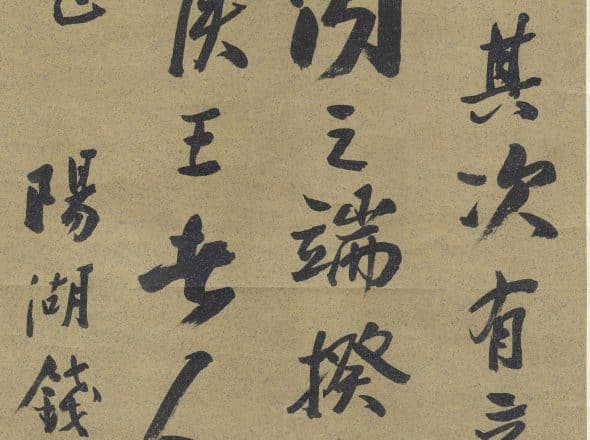 其次有立
之端揆
侯王者人
陽湖錢